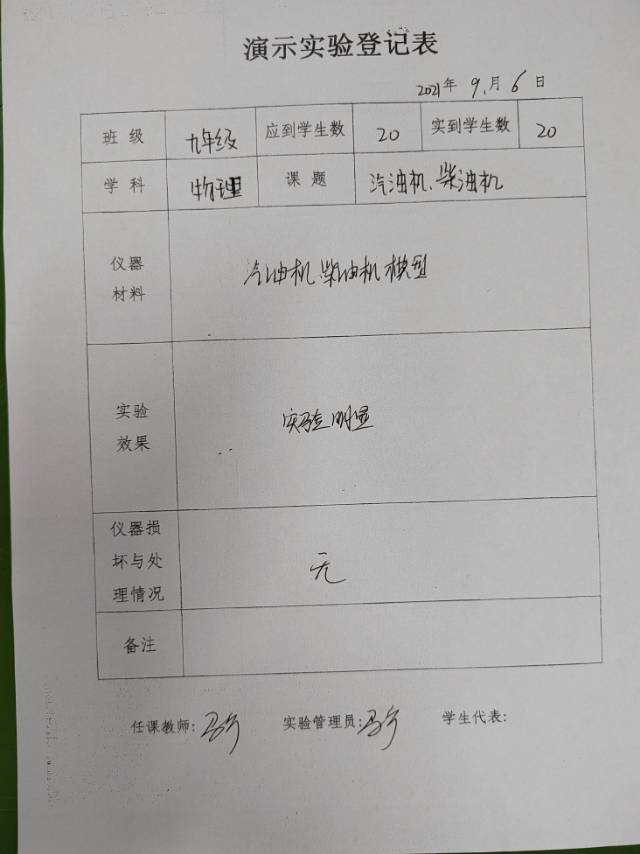 演示实验登记表
2021年 9.月 6 日
班 级 九年级 应到学生数 20 实到学生数 20
学 科 物理 课 题 汽油机、柴油机
仪器
材料
汽油机 柴油机 模型
实验
效果
实验明显
仪器损
坏与处
理情况
无
备注
任课教师: 实验管理员: 学生代表: